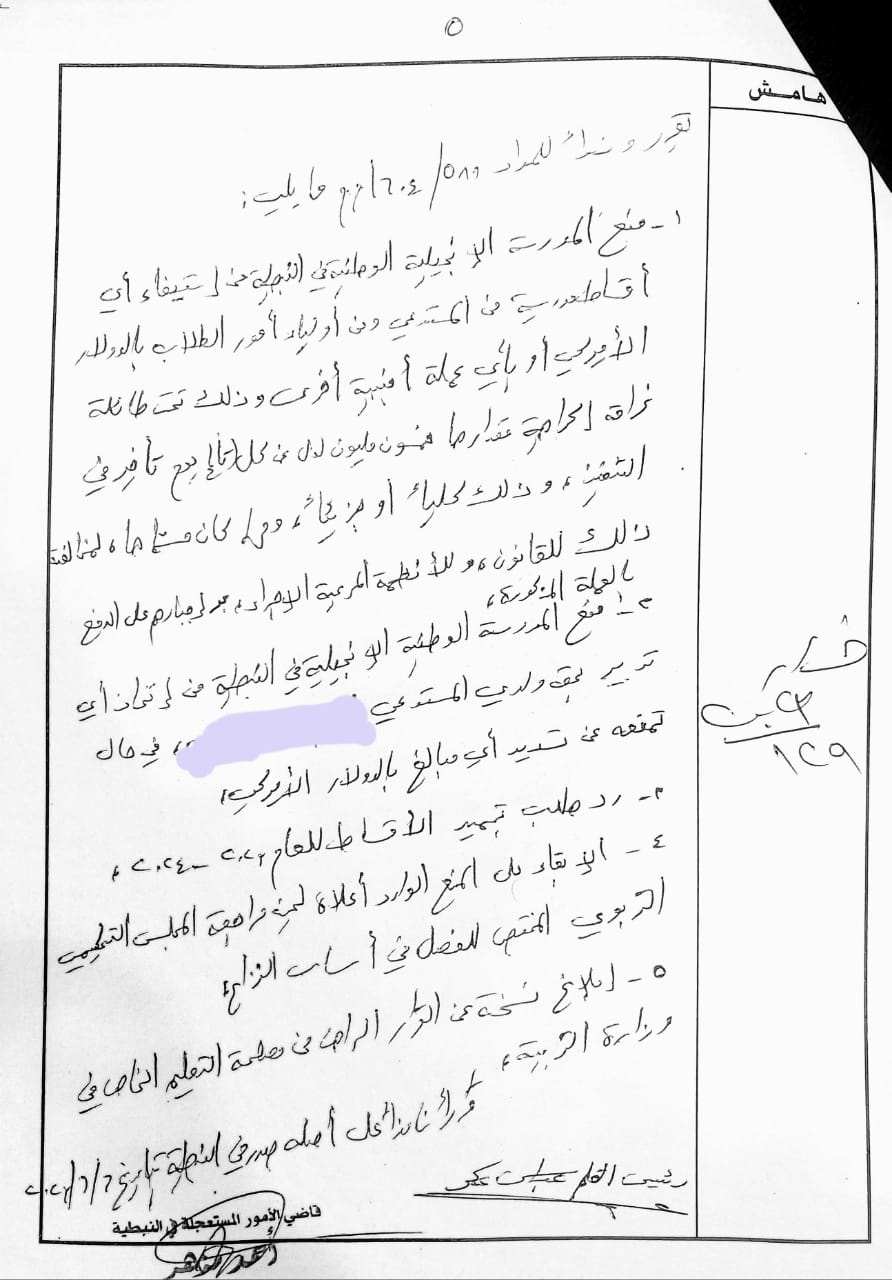 ٥
هامش
نقرر وسنداً للمواد ٥٨٩/ ٦٠٤/أ.م.م ما يلي:
١- منع المدرسة الإنجيلية الوطنية في النبطية من إستيفاء أي
أقساط مدرسية من المستدعي ومن أولياء أمور الطلاب بالدولار
الأميركي أو بأي عملة أجنبية أخرى وذلك تحت طائلة
غرامة إكراهية مقدارها خمسون مليون ل.ل. عن كل يوم تأخير في
التنفيذ، وذلك كلياً أو جزئياً، ومهما كان مسمّاها، لمخالفة
ذلك للقانون، وللأنظمة المرعية الإجراء، بعد إجبارهم على الدفع
بالعملة المذكورة،
٢- منع المدرسة الوطنية الإنجيلية في النبطية من إتخاذ أي
تدبير بحق ولدي المستدعي ، في حال
تمنعه عن تسديد أي مبالغ بالدولار الأميركي،
٣- رد طلب تجميد الأقساط للعام ٢٠٢٣-٢٠٢٤،
٤- الإبقاء على المنع الوارد أعلاه لحين مراجعة المجلس التحكيمي
التربوي المختص للفصل في أساس النزاع،
٥- إبلاغ نسخة عن القرار الراهن من مصلحة التعليم الخاص في
وزارة التربية،
قراراً نافذاً على أصله صدر في النبطية بتاريخ
رئيس القلم عباس
قاضي الأمور المستعجلة في النبطية
أحمد مزهر